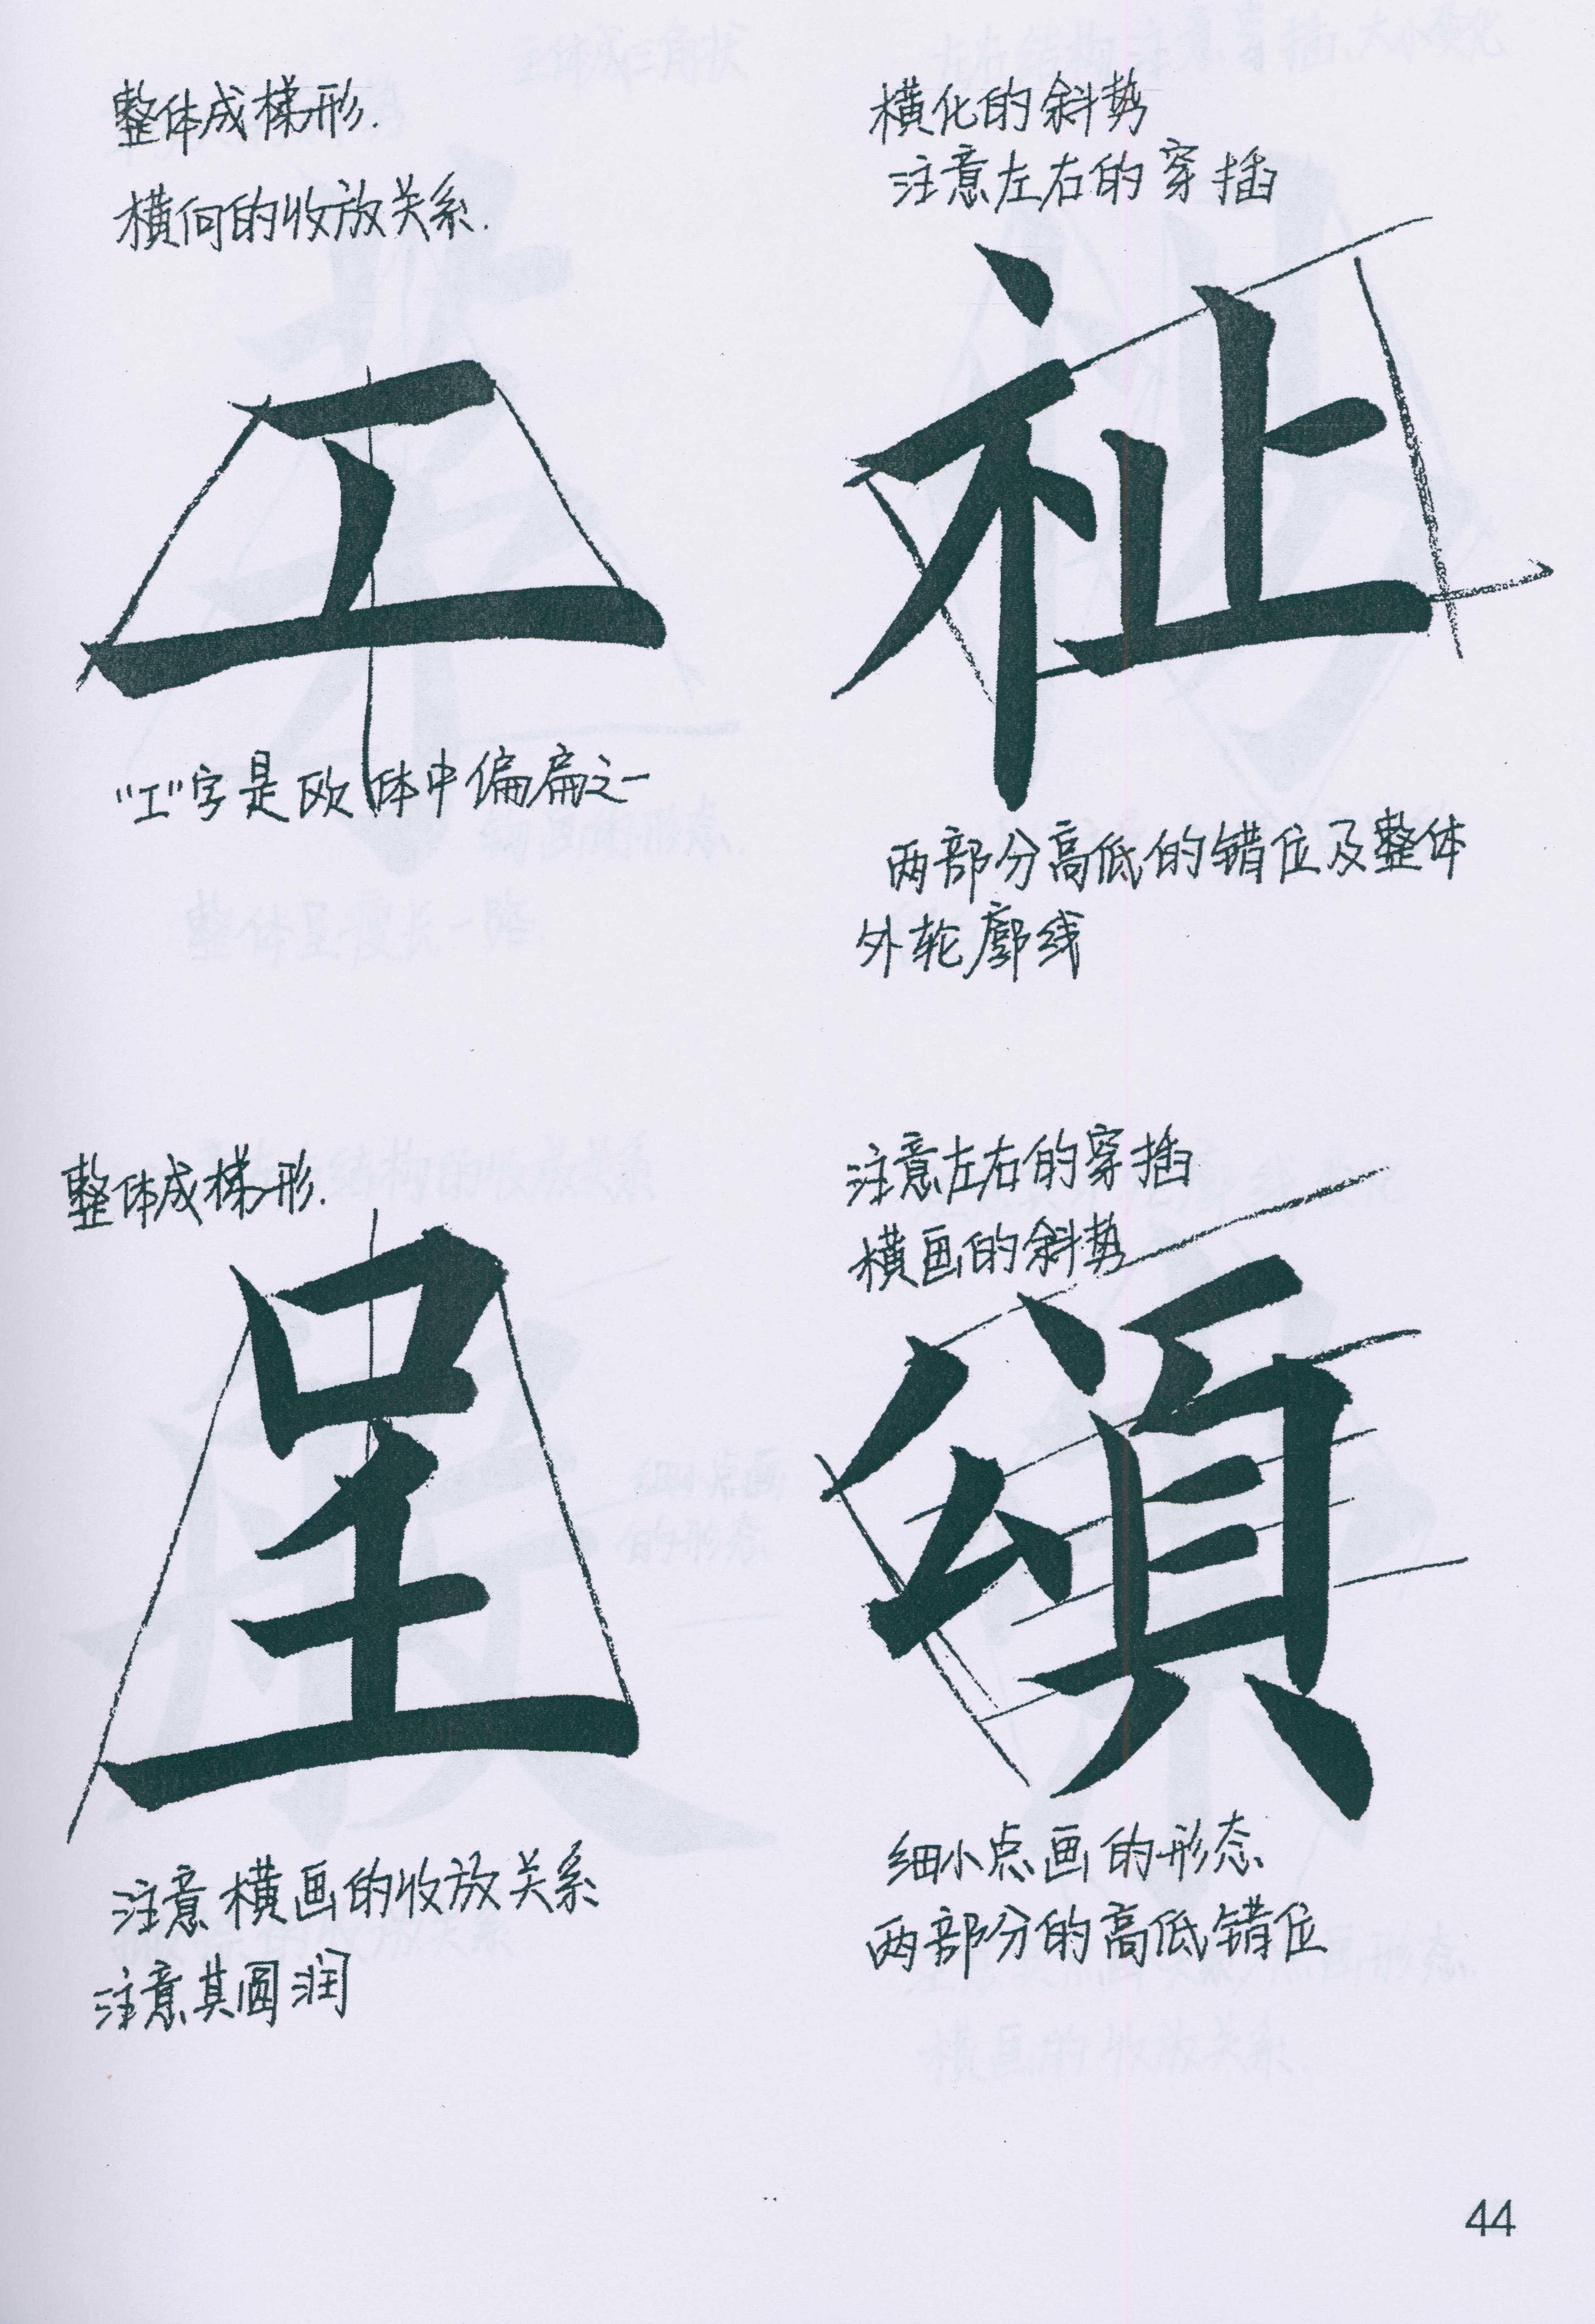 整体成梯形.
横向的收放关系.
工
"工"字是欧体中偏扁之一
横化的斜势
注意左右的穿插
祉
两部分高低的错位及整体
外轮廓线
整体成梯形.
呈
注意横画的收放关系
注意其圆润
注意左右的穿插
横画的斜势
頌
细小点画的形态
两部分的高低错位
44